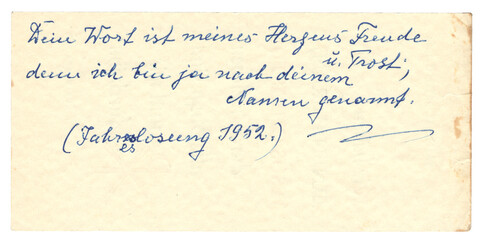 Dein Wort ist meines Herzens Freude
u. Trost;
denn ich bin ja nach deinem
Namen genannt.
(Jahreslosung 1952.)